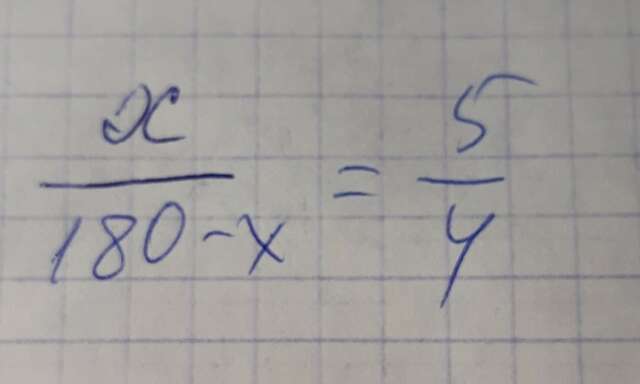 x / (180 - x) = 5 / 4